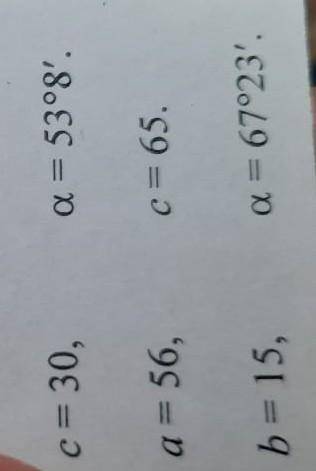 c = 30, α = 53°8′.
a = 56, c = 65.
b = 15, α = 67°23′.